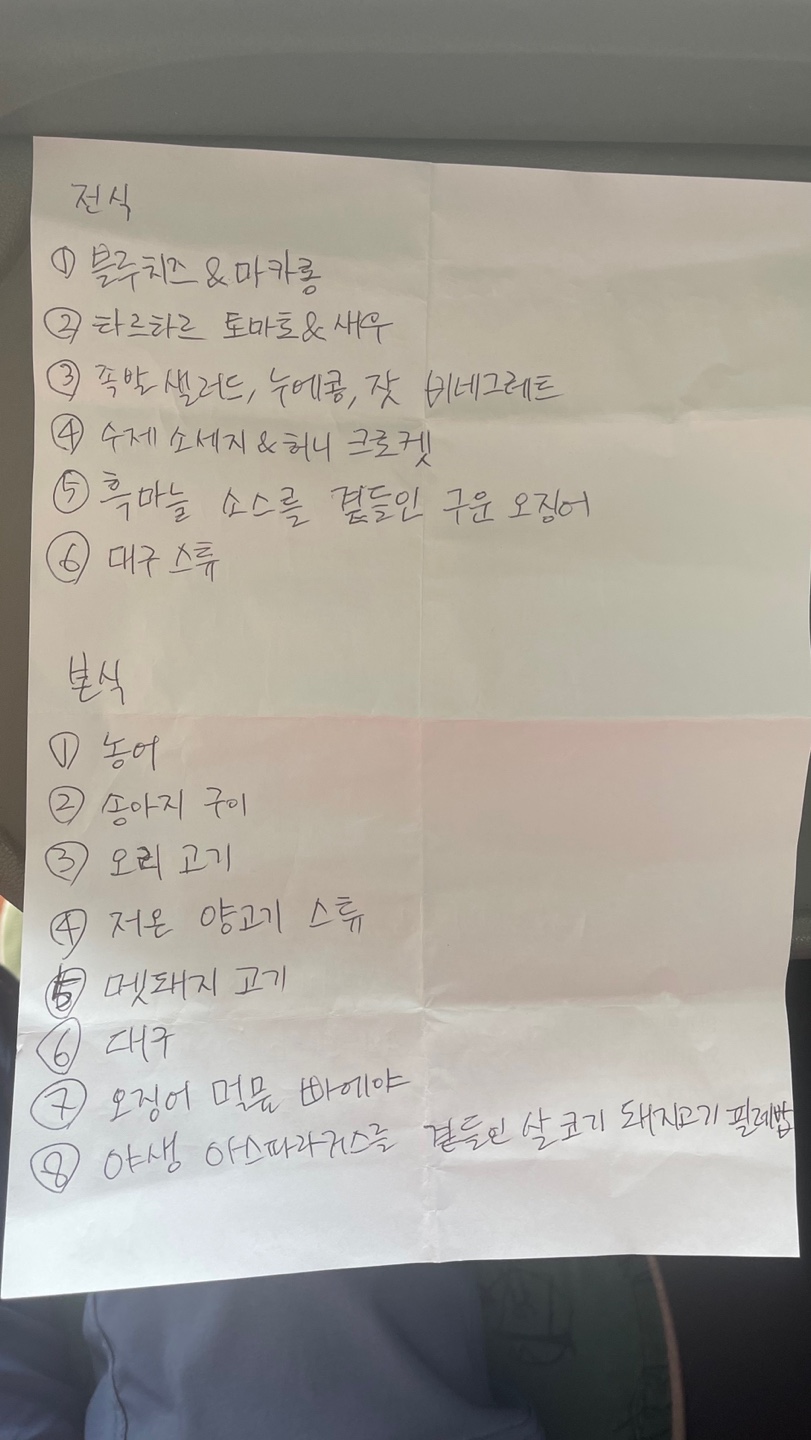 전식
① 블루치즈 & 마카롱
② 타르타르 토마토 & 새우
③ 족발 샐러드, 누에콩, 잣 비네그레트
④ 수제 소세지 & 허니 크로켓
⑤ 흑마늘 소스를 곁들인 구운 오징어
⑥ 대구 스튜
본식
① 농어
② 송아지 구이
③ 오리 고기
④ 저온 양고기 스튜
⑤ 멧돼지 고기
⑥ 대구
⑦ 오징어 먹물 빠에야
⑧ 야생 아스파라거스를 곁들인 살코기 돼지고기 필레밥